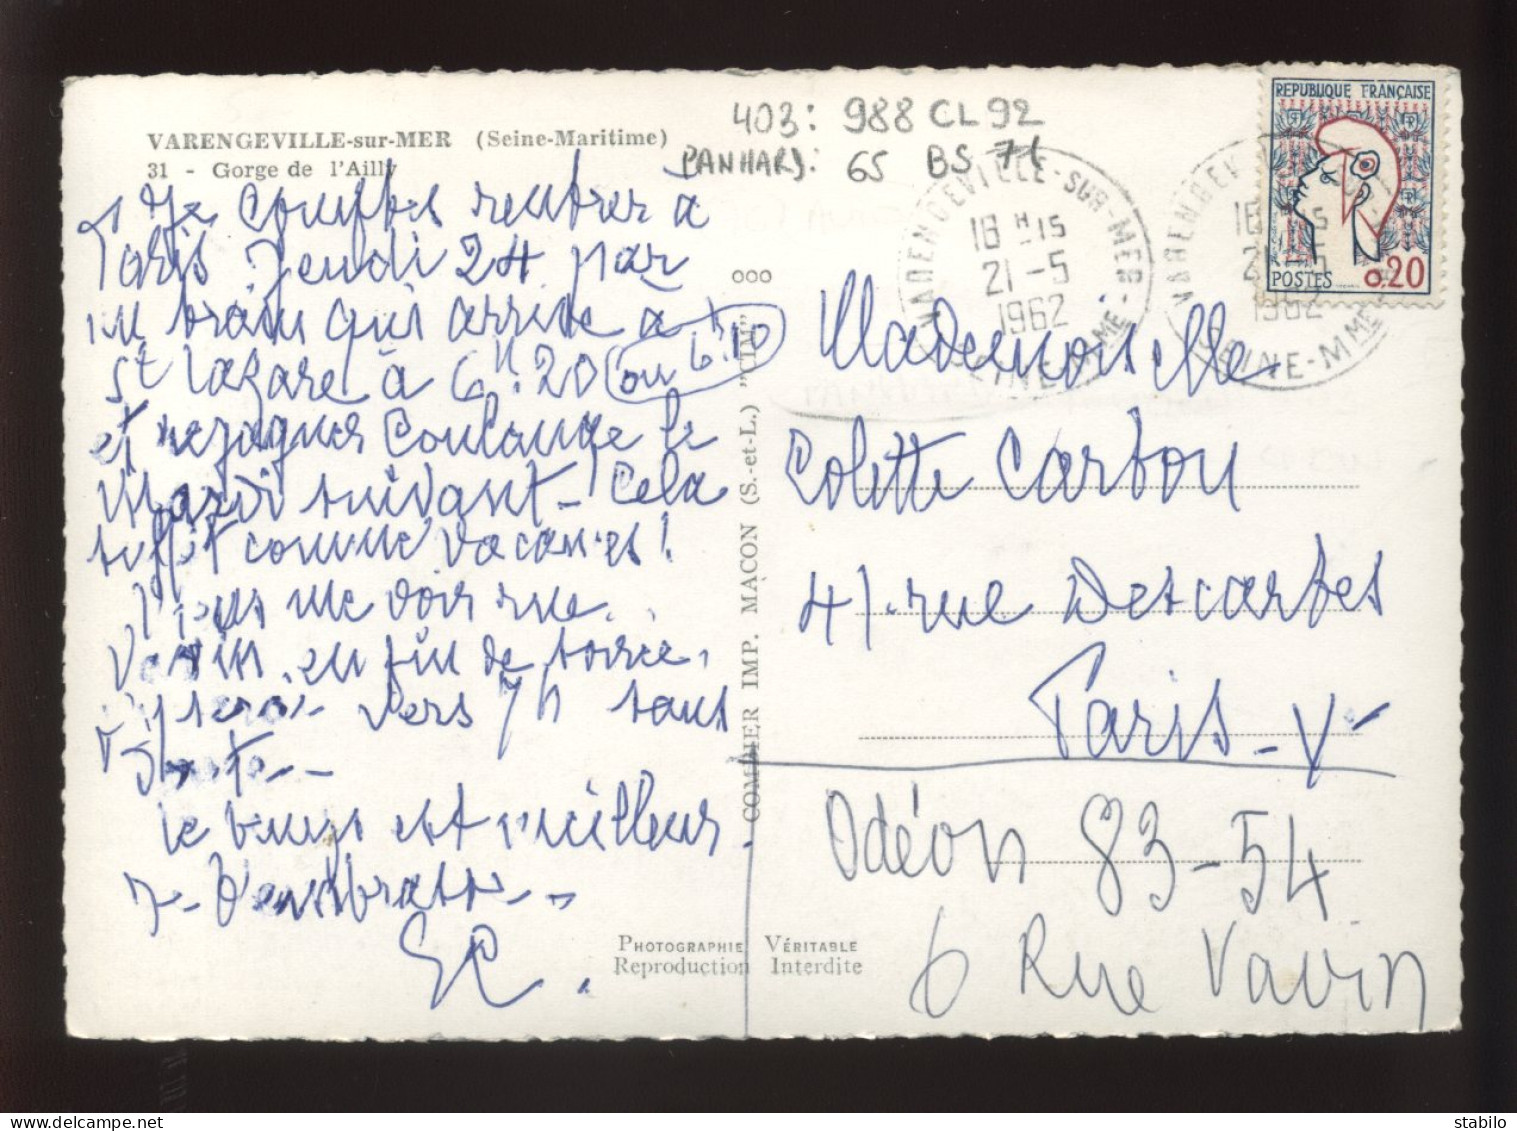 VARENGEVILLE-sur-MER (Seine-Maritime)
31 - Gorge de l'Ailly
403: 988 CL 92
PANHARD: 65 BS 76
Je compte rentrer à
Paris Jeudi 24 par
un train qui arrive à
St Lazare à 6h.20 (ou 6h10)
et regagner Coulange le
mardi suivant - Cela
suffit comme vacances!
Viens me voir rue
Vavin en fin de soirée.
J'y serai vers 7h sans
doute -
Le temps est meilleur.
Je t'embrasse -
COMBIER IMP. MACON (S.-et-L.) "CIM"
ooo
VARENGEVILLE-SUR-MER
18H15
21-5
1962
SEINE-MME
VARENGEVILLE-SUR-MER
18H15
21-5
1962
SEINE-MME
REPUBLIQUE FRANÇAISE
POSTES 0.20
Mademoiselle
Colette Carbou
41 rue Descartes
Paris - V
Odéon 83-54
6 Rue Vavin
PHOTOGRAPHIE VÉRITABLE
Reproduction Interdite
stabilo